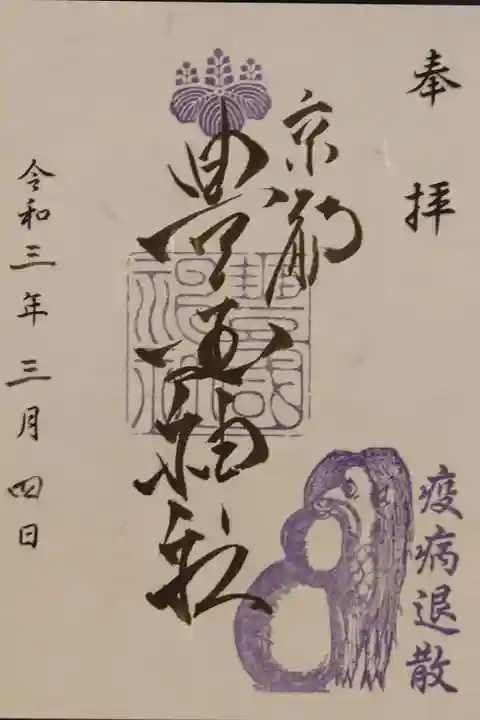 奉拝
疫病退散
京都
豊国神社
令和三年三月四日